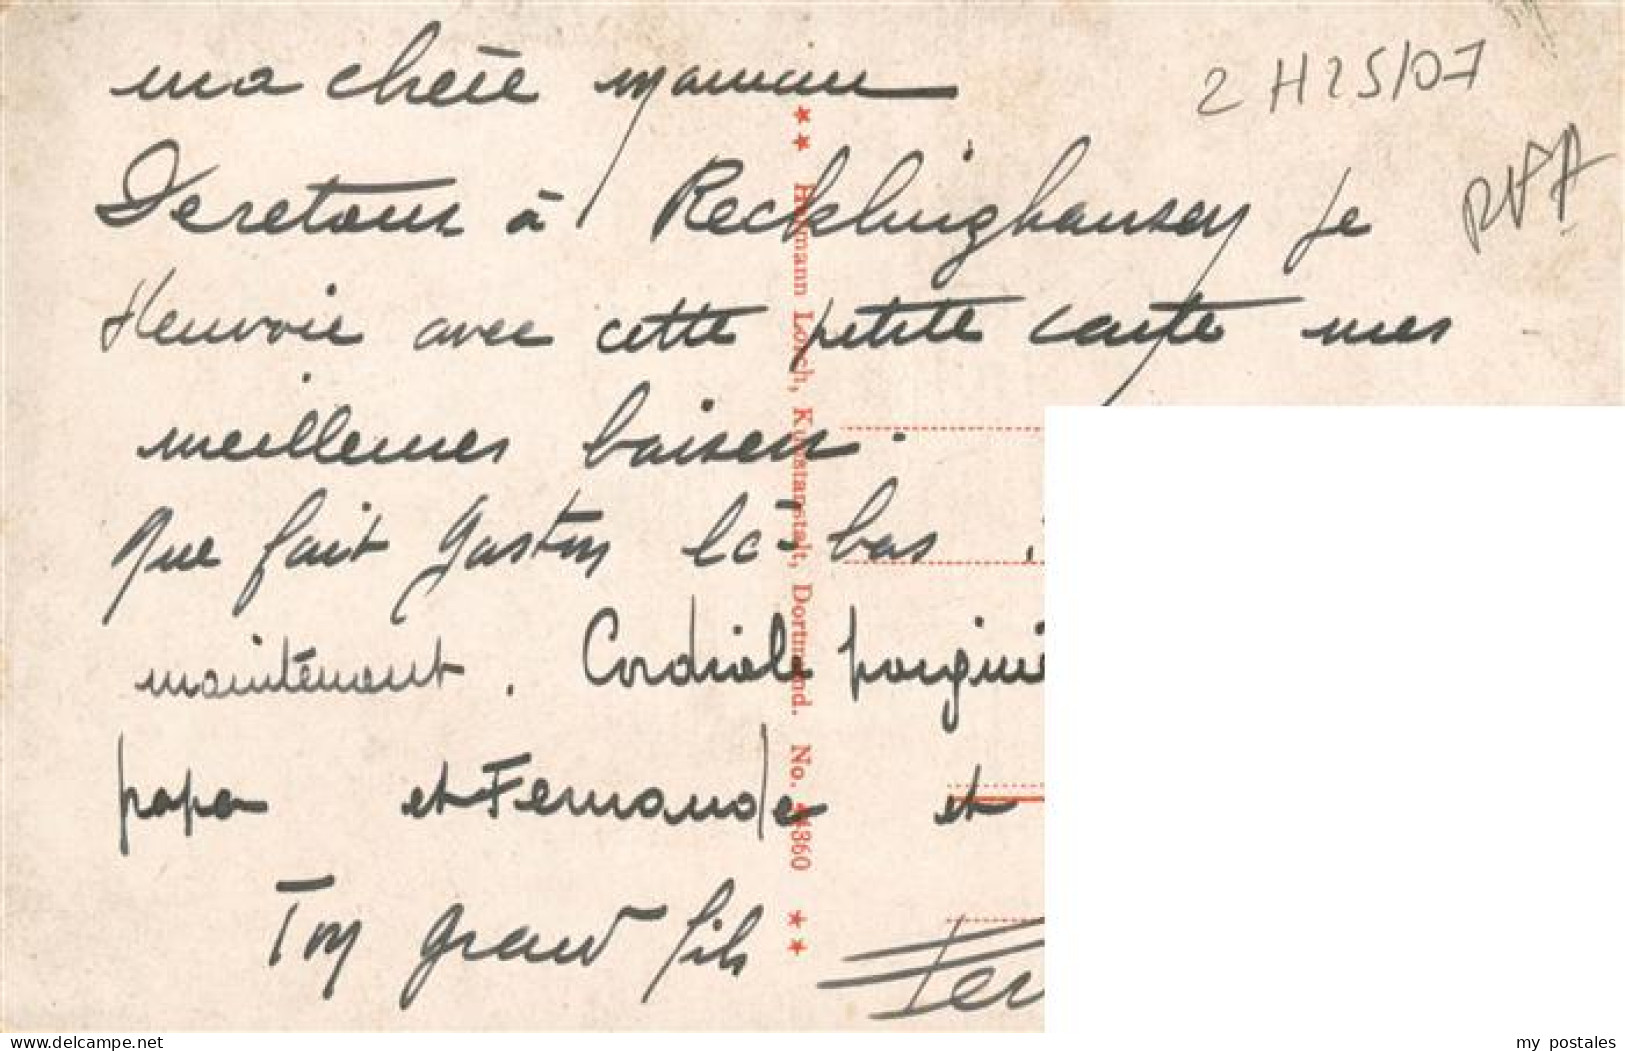 ma chère maman
De retour à Recklinghausen je
t'envoie avec cette petite carte mes
meilleures baisers.
Que fait Gaston là-bas
maintenant. Cordiale poigné
papa et Fernande et
Ton grand fils
Fer
2 H25/07
** Hermann Lorch, Kunstanstalt, Dortmund. No. 360 **
my postales
www.delcampe.net